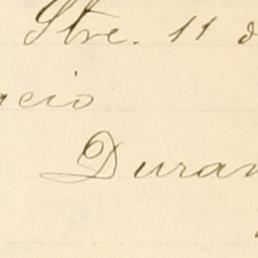 Stre. 11 d
acio
Duran